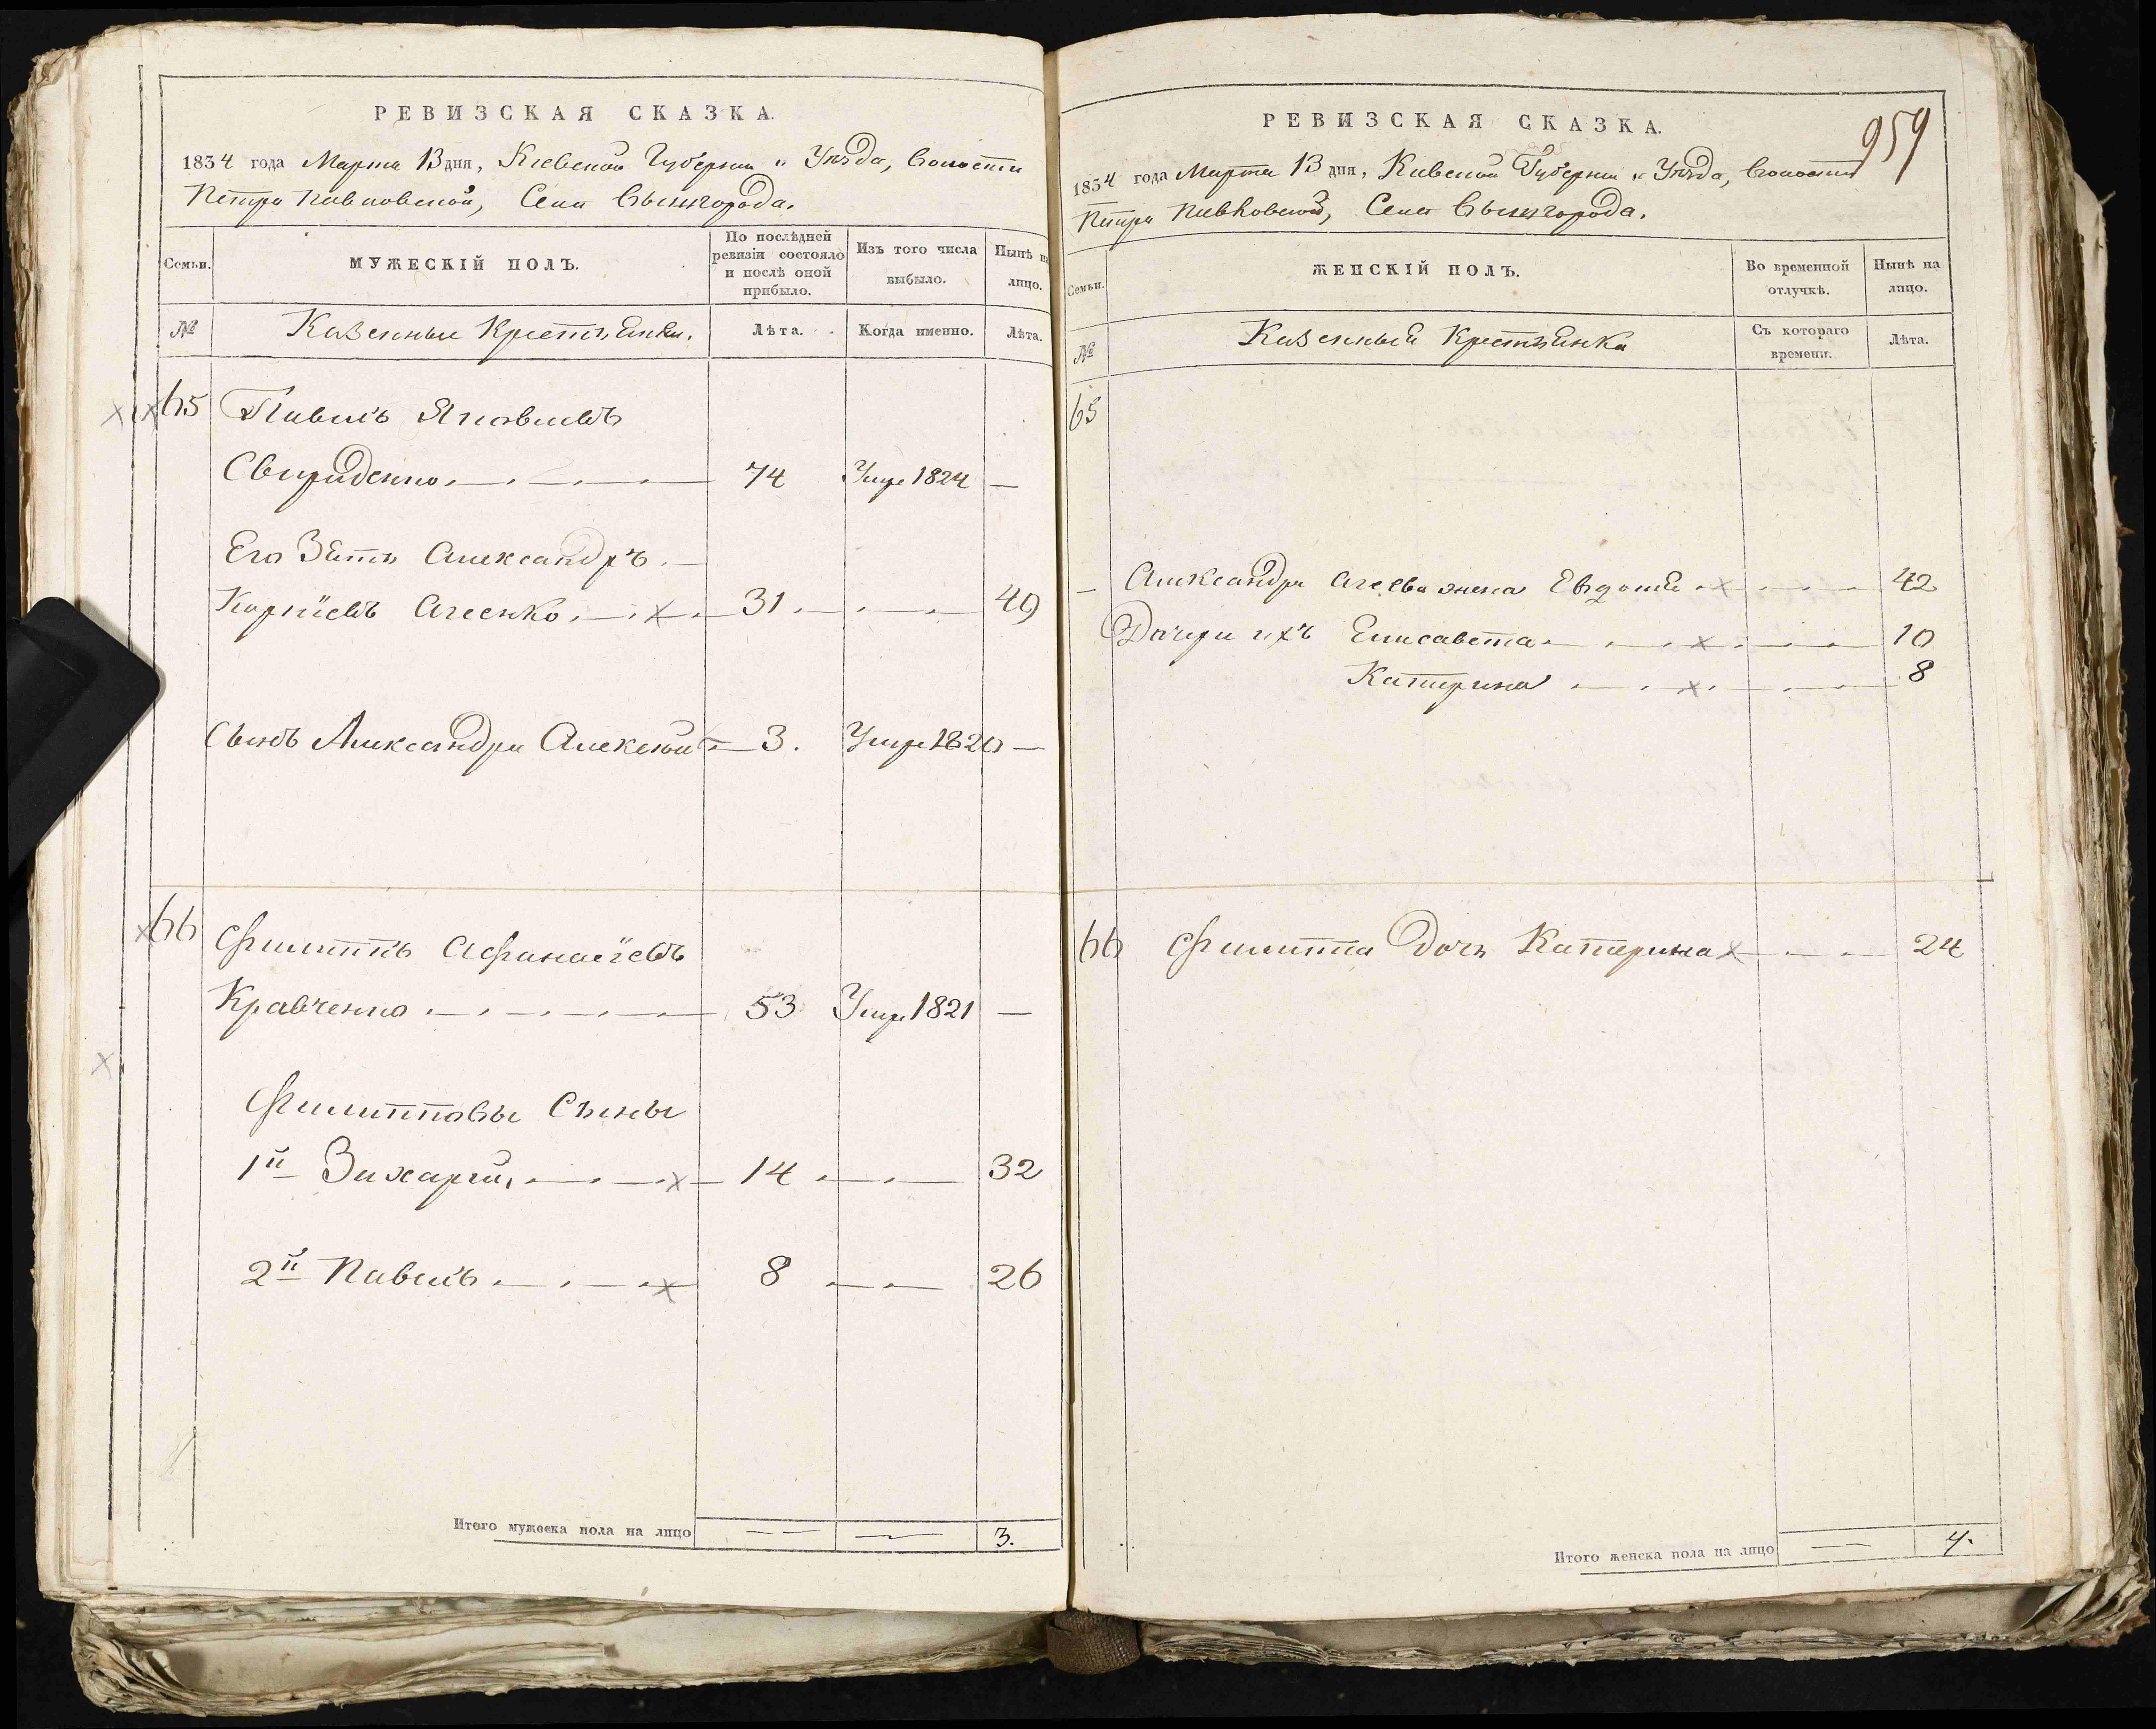 РЕВИЗСКАЯ СКАЗКА.
1834 года Марта 13 дня, Кіевской Губерніи и Уѣзда, Волости
Петро Павловской, Села Вышгорода.
Семьи.
МУЖЕСКІЙ ПОЛЪ.
По послѣдней ревизіи состояло и послѣ оной прибыло.
Изъ того числа выбыло.
Нынѣ на лицо.
№
Казенные Крестьянки.
Лѣта.
Когда именно.
Лѣта.
65 Павелъ Яковлевъ
Свириденко 74 Умре 1824 —
Его Зять Александръ
Корнѣевъ Агеенко 31 49
Сынъ Александра Алексей 3. Умре 1820 —
66 Филиппъ Афанасіевъ
Кравченко 53 Умре 1821 —
Филипповы Сыны
1й Захарій 14 32
2й Павелъ 8 26
Итого мужеска пола на лицо — — 3.
959
РЕВИЗСКАЯ СКАЗКА.
1834 года Марта 13 дня, Кіевской Губерніи и Уѣзда, Волости
Петро Павловской, Села Вышгорода.
Семьи.
ЖЕНСКІЙ ПОЛЪ.
Во временной отлучкѣ.
Нынѣ на лицо.
№
Казенныя Крестьянки
Съ котораго времени.
Лѣта.
65
Александра Агеева жена Евдокія 42
Дочери ихъ Елисавета 10
Катерина 8
66 Филиппа дочь Катерина 24
Итого женска пола на лицо — 4.